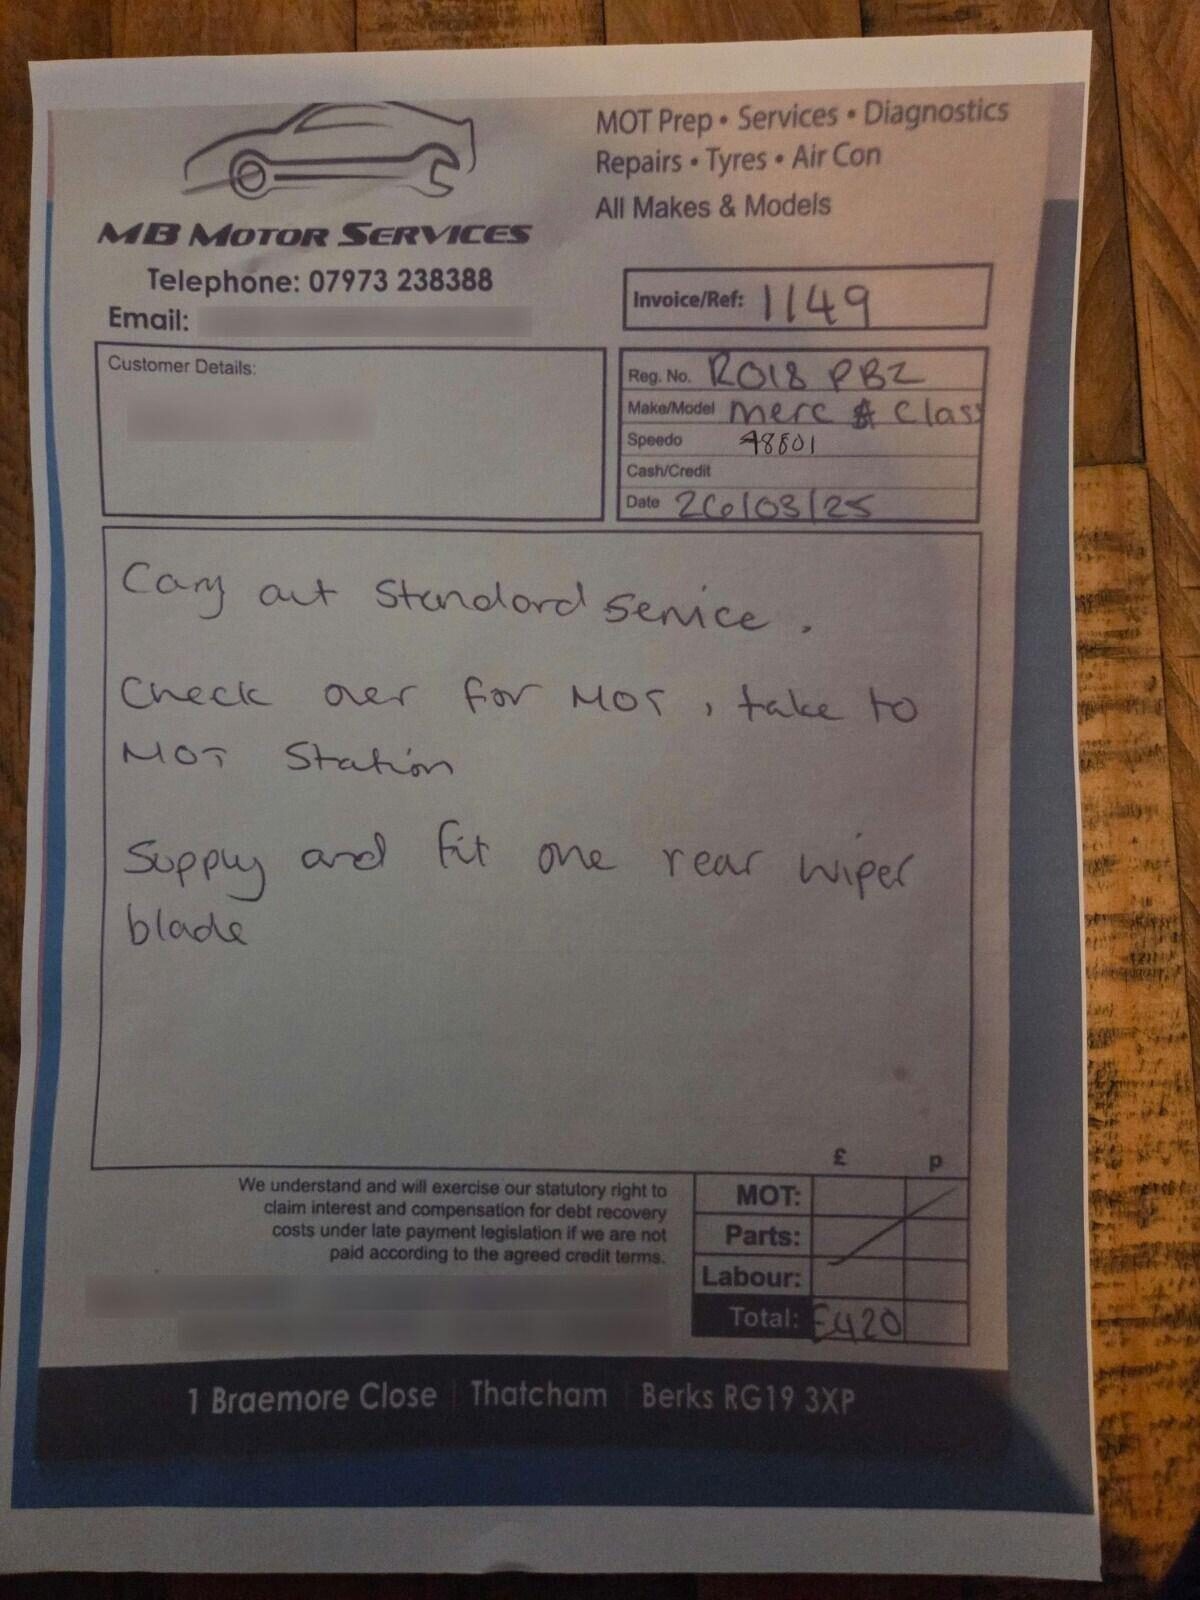 MOT Prep • Services • Diagnostics
Repairs • Tyres • Air Con
All Makes & Models
MB MOTOR SERVICES
Telephone: 07973 238388
Email:
Invoice/Ref: 1149
Customer Details:
Reg. No. RO18 PBZ
Make/Model Merc A Class
Speedo 48801
Cash/Credit
Date 26/03/25
Carry out Standard Service.
Check over for MOT, take to
MOT Station
Supply and fit one rear wiper
blade
£ p
We understand and will exercise our statutory right to
claim interest and compensation for debt recovery
costs under late payment legislation if we are not
paid according to the agreed credit terms.
MOT:
Parts:
Labour:
Total: £420
1 Braemore Close | Thatcham | Berks RG19 3XP